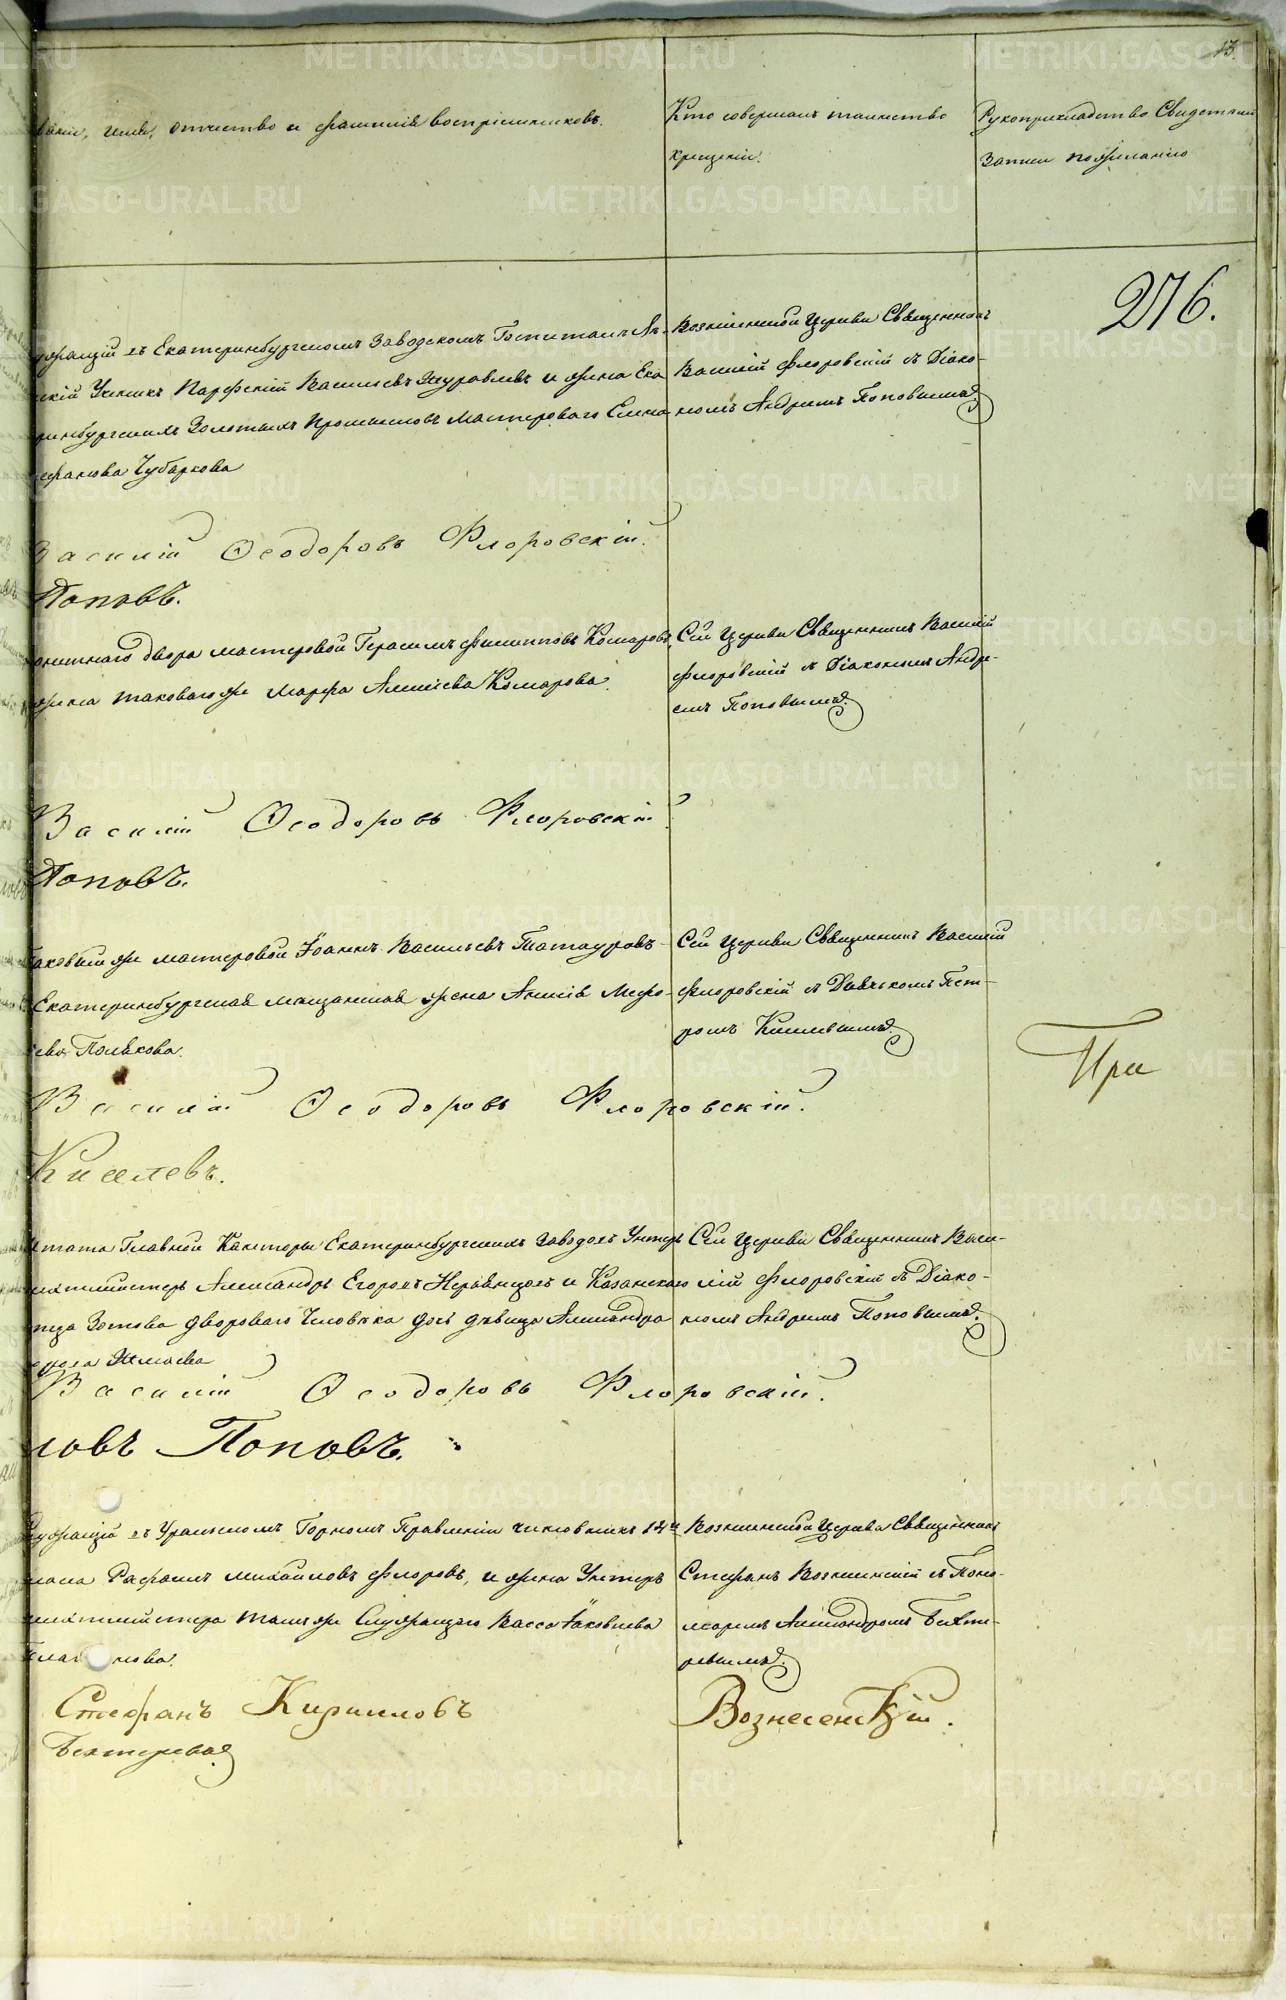 13.
имя, отчество и фамилія воспріемниковъ.
Кто совершалъ таинство
крещенія.
Рукоприкладство Свидѣтелей
Записи по желанію
276.
въ Екатеринбургскомъ Заводскомъ Госпиталѣ Лѣ-
скій Ученикъ Васильевъ Журавлевъ и жена Ека
ринбургскихъ Золотыхъ Промысловъ мастероваго Елена
Чубаркова
Вознесенской Церкви Священникъ
Василій Флоровскій съ Діако-
номъ Андреемъ Поповымъ.
Василій Ѳеодоровъ Флоровскій.
Поповъ.
двора мастеровой Герасимъ Филипповъ Комаровъ,
жена таковаго же Марфа Алексіева Комарова.
Сей Церкви Священникъ Василій
Флоровскій съ Діакономъ Андре-
емъ Поповымъ.
Василій Ѳеодоровъ Флоровскій
Поповъ.
Таковый же мастеровой Іоаннъ Васильевъ Татауровъ
Екатеринбургская мѣщанская жена
Полякова.
Сей Церкви Священникъ Василій
Флоровскій съ Дьячкомъ Пет-
ромъ Киселевымъ.
При
Василій Ѳеодоровъ Флоровскій.
Киселевъ.
штата Главной Канторы Екатеринбургскихъ Заводовъ Унтеръ
шихтмейстеръ Александръ Егоровъ и Казанскаго
Зотова двороваго человѣка дочь дѣвица Александра
Сей Церкви Священникъ Васи-
лій Флоровскій съ Діако-
номъ Андреемъ Поповымъ.
Василій Ѳеодоровъ Флоровскій.
ловъ Поповъ.
Служащій въ Уральскомъ Горномъ Правленіи чиновникъ 14го
класа Рафаилъ Михайловъ Флоровъ, и жена Унтеръ
шихтмейстера тамъ же Служащаго Васса Яковлева
Вознесенской Церкви Священникъ
Стефанъ Вознесенскій съ Поно-
маремъ Александромъ Бехте-
ревымъ.
Стефанъ Кирилловъ Вознесенскій.
Бехтеревъ
METRIKI.GASO-URAL.RU